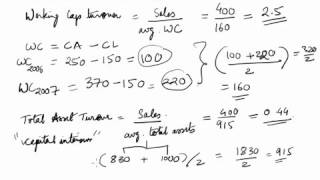 Working Cap turnover = Sales / avg. WC = 400 / 160 = 2.5
WC = CA - CL
WC2006 = 250 - 150 = 100
WC2007 = 370 - 150 = 220
(100 + 220 / 2) = 320 / 2
= 160
Total Asset Turnove = Sales / avg. total assets = 400 / 915 = 0.44
"capital intensive"
(830 + 1000) / 2 = 1830 / 2 = 915